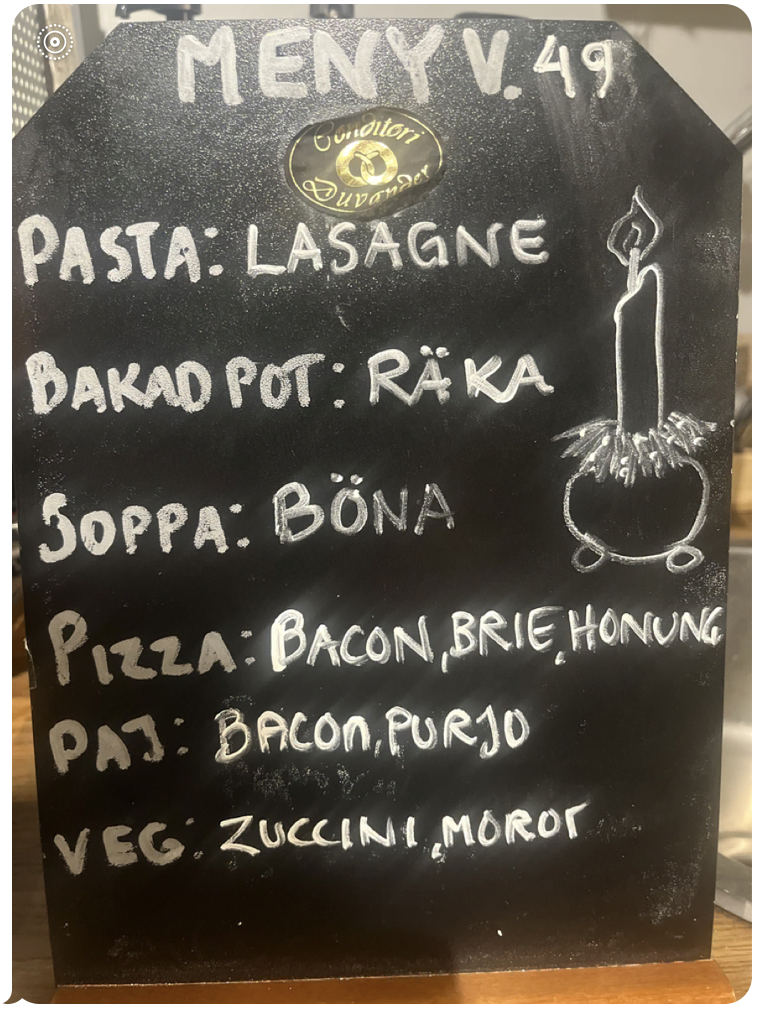 MENY V. 49
Conditori
Duvander
PASTA: LASAGNE
BAKAD POT: RÄKA
SOPPA: BÖNA
PIZZA: BACON, BRIE, HONUNG
PAJ: BACON, PURJO
VEG: ZUCCINI, MOROT